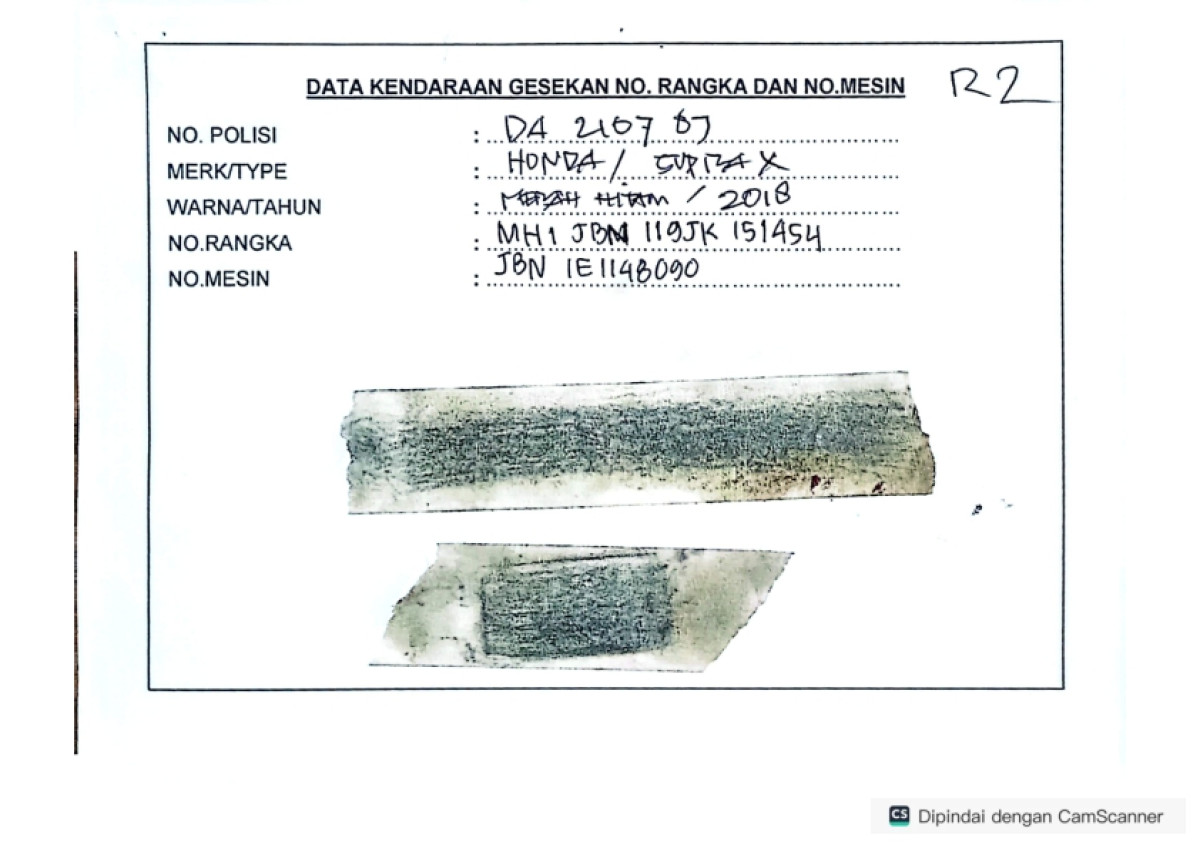 DATA KENDARAAN GESEKAN NO. RANGKA DAN NO.MESIN
R2
NO. POLISI : DA 2107 BJ
MERK/TYPE : HONDA / SUPRA X
WARNA/TAHUN : MERAH HITAM / 2018
NO.RANGKA : MH1 JBN 119JK 151454
NO.MESIN : JBN 1E1148090
CS Dipindai dengan CamScanner